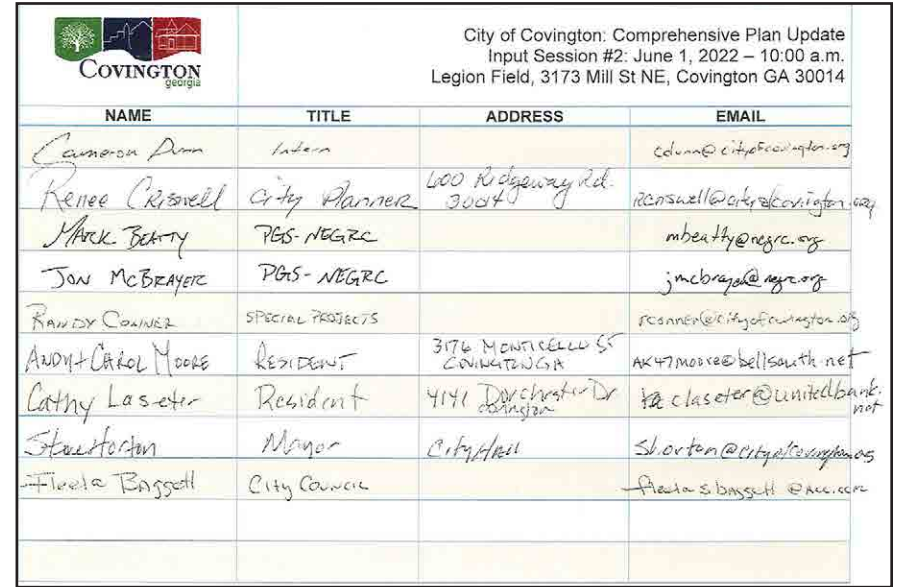 COVINGTON
georgia
City of Covington: Comprehensive Plan Update
Input Session #2: June 1, 2022 – 10:00 a.m.
Legion Field, 3173 Mill St NE, Covington GA 30014
NAME TITLE ADDRESS EMAIL
Cameron Dunn Intern cdunn@cityofcovington.org
Renee Criswell City Planner 600 Ridgeway Rd. 30014 rcriswell@cityofcovington.org
MARK BEATTY PGS-NEGRC mbeatty@negrc.org
JON MCBRAYER PGS-NEGRC jmcbrayer@negrc.org
RANDY CONNER SPECIAL PROJECTS rconner@cityofcovington.org
ANDY + CAROL MOORE RESIDENT 3176 MONTICELLO ST COVINGTON GA AK47moore@bellsouth.net
Cathy Laseter Resident 4141 Dorchester Dr Covington claseter@unitedbank.net
Steve Horton Mayor City Hall shorton@cityofcovington.org
Fleeta Baggett City Council